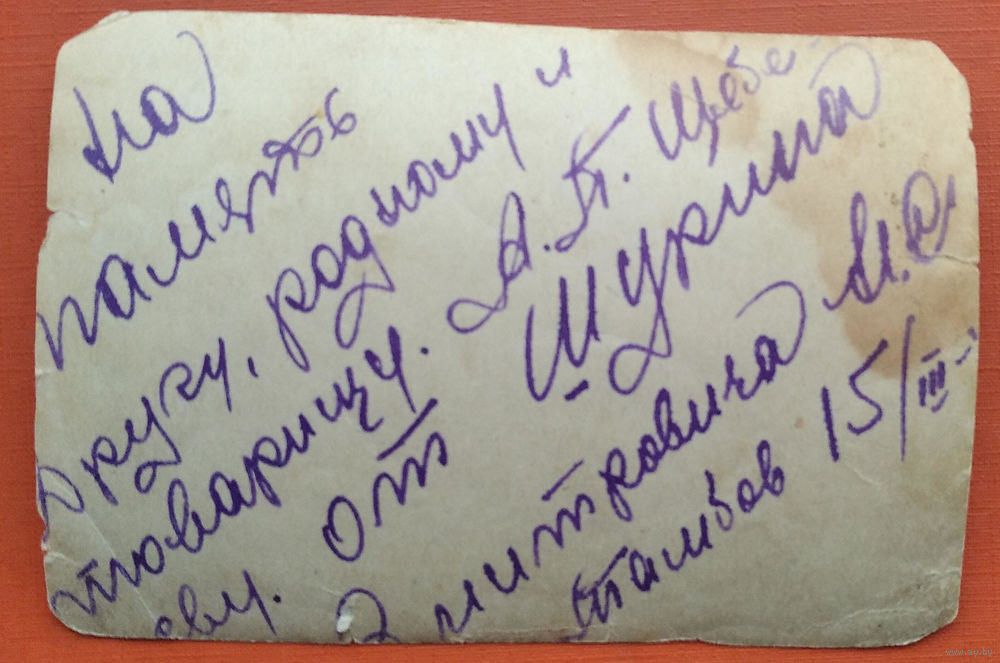 На
память
другу, родному и
товарищу. А.П. Щебе-
еву. от Шурина
Дмитровича М.Ф.
Тамбов 15/III-
www.ay.by